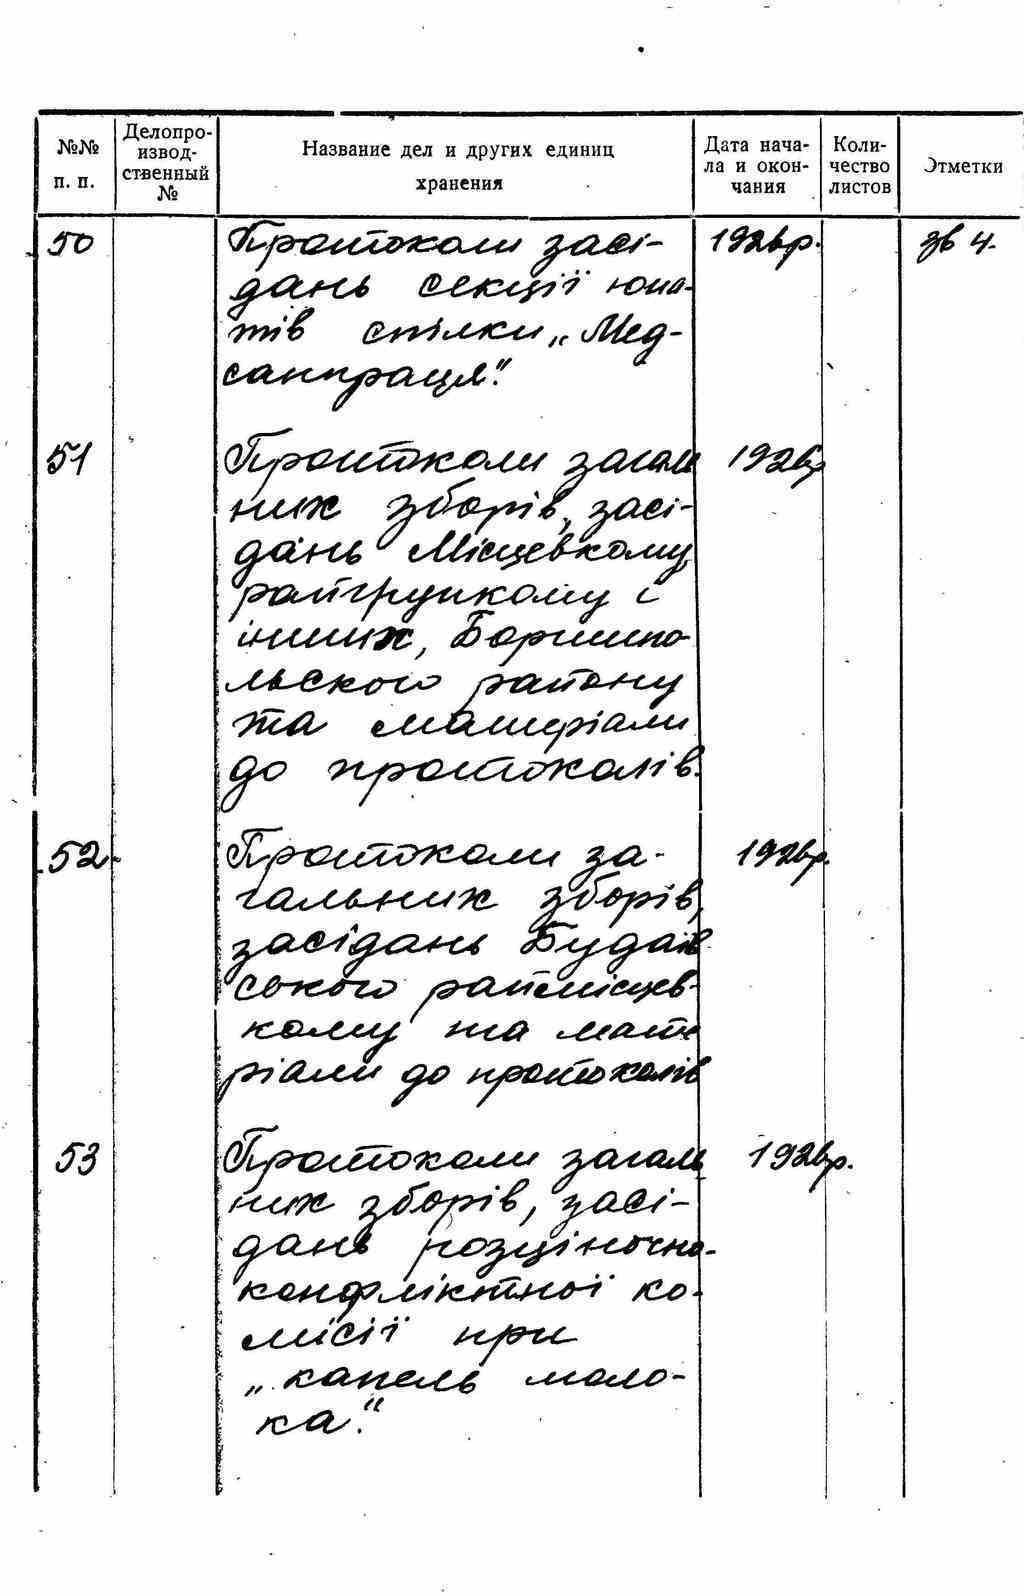 №№ п. п.
Делопро-
извод-
ственный
№
Название дел и других единиц
хранения
Дата нача-
ла и окон-
чания
Коли-
чество
листов
Этметки
50
Протоколи засі-
дань секції юна-
тів спілки „Мед-
санпраця".
192вр.
51
Протоколи загаль
них зборів, засі-
дань Місцевкому,
райгрупкому і
інших, Бориспо-
льского району
та матеріали
до протоколів.
192вр
52
Протоколи за-
гальних зборів,
засідань Будаїв
ського раймісцев-
кому та мате
ріали до протоколів
192вр.
53
Протоколи загаль
них зборів, засі-
дань розціночно-
конфліктної ко-
місії при
„капель моло-
ка".
192вр.